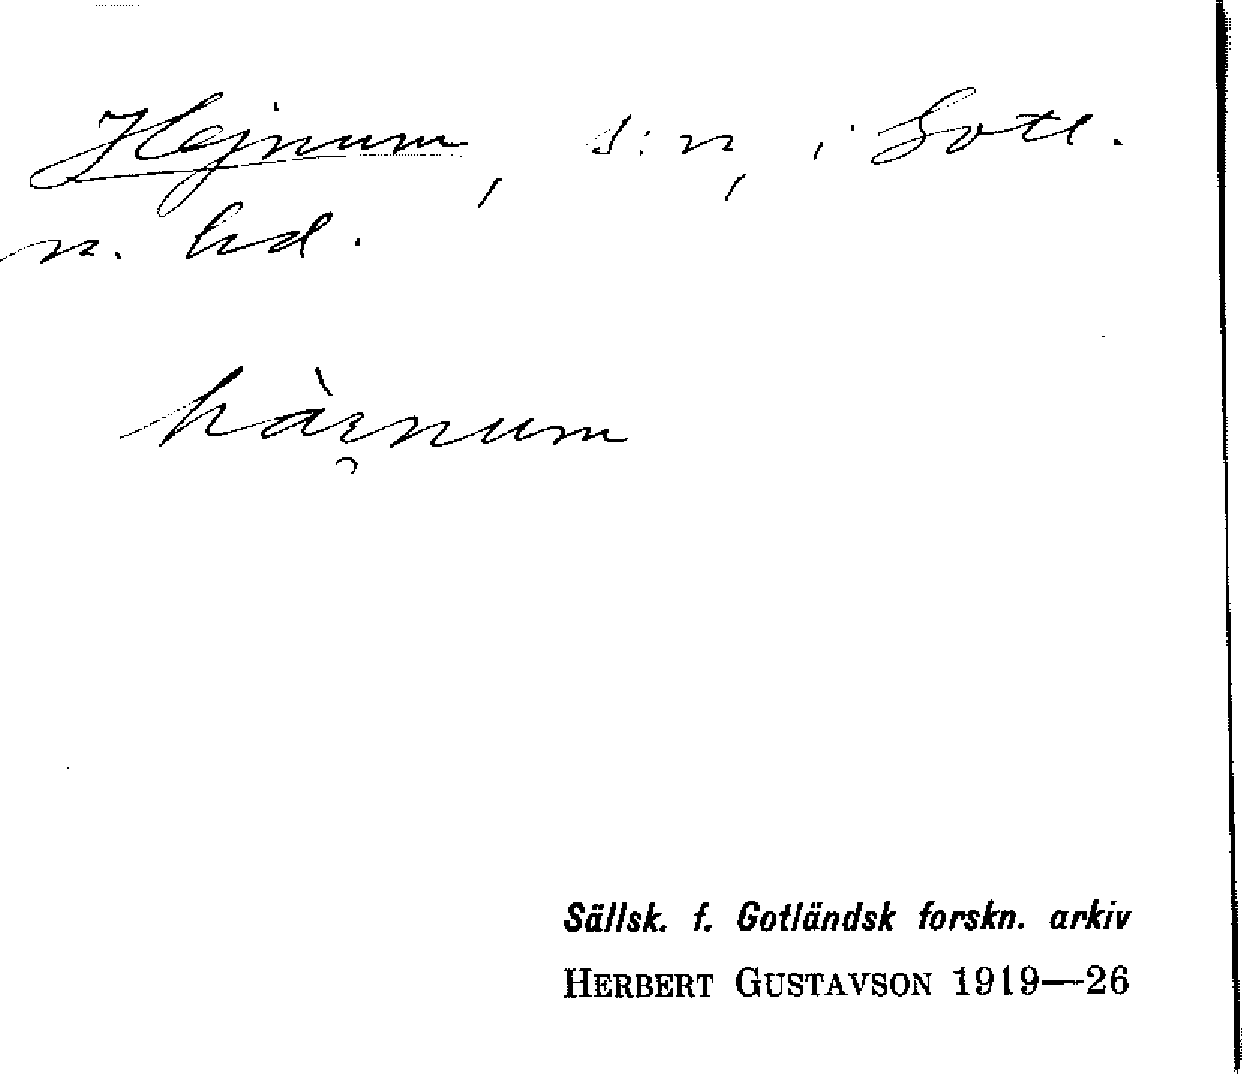 Hejnum, s:n, i Gotl.
n. hd.
hài̯num
Sällsk. f. Gotländsk forskn. arkiv
HERBERT GUSTAVSON 1919—26